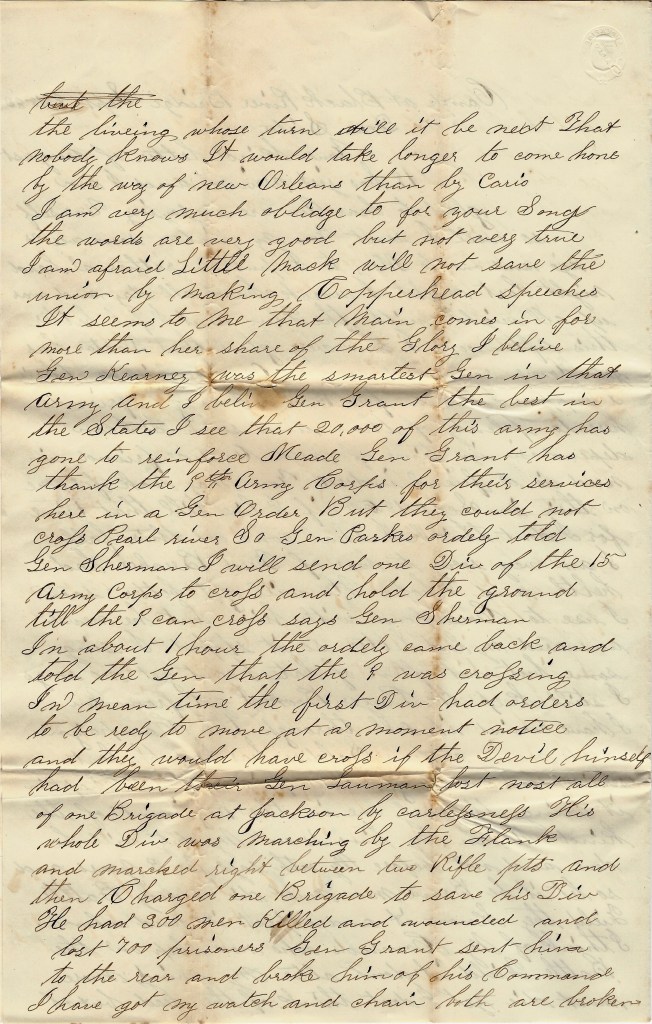 but the
the liveing whose turn will it be next That
nobody knows It would take longer to come home
by the way of new Orleans than by Cario
I am very much oblidge to for your Song
the words are very good but not very true
I am afraid Little Mack will not save the
union by making Copperhead speeches
It seems to me that Main comes in for
more than her share of the Glory I belive
Gen Kearney was the smartest Gen in that
Army And I beliv Gen Grant the best in
the States I see that 20,000 of this army has
gone to reinforce Meade Gen Grant has
thank the 9th Army Corps for their services
here in a Gen Order But they could not
cross Pearl river So Gen Parkes ordely told
Gen Sherman I will send one Div of the 15
Army Corps to cross and hold the ground
till the 9 can cross says Gen Sherman
In about 1 hour the ordely came back and
told the Gen that the 9 was crossing
In mean time the first Div had orders
to be redy to move at a moment notice
and they would have cross if the Devil himself
had been their Gen Lauman lost most all
of one Brigade at Jackson by carlessness His
whole Div was marching by the Flank
and marched right between two Rifle pits and
then Charged one Brigade to save his Div
He had 300 men Killed and wounded and
lost 700 prisoners Gen Grant sent him
to the rear and broke him of his Command
I have got my watch and chain both are broken